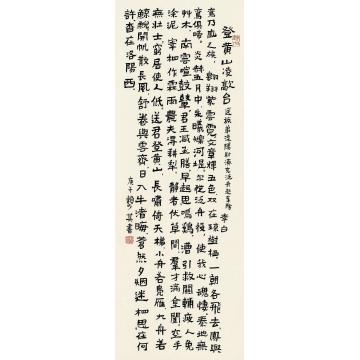 登黄山凌歊台 送族弟溧陽尉濟充泛舟赴華陰 李白
鸞乃鳳之族翱翔紫雲霓文章輝五色雙在瓊樹棲一朝各飛去鳳與
鸞俱啼炎赫五月中朱曦爍河堤爾從泛舟役使我心魂悽秦地無
草木南雲喧鼓鼙君王減玉膳早起思鳴鷄漕引救關輔疲人免
塗泥宰相作霖雨農夫得耕犁靜者伏草間羣才滿金閨空手
無壯士窮居使人低送君登黄山長嘯倚天梯小舟若鳧雁大舟若
鯨鯢開帆散長風舒卷與雲齊日入牛渚晦蒼然夕烟迷相思定何
許杳在洛陽西
庚午賴少其書